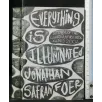 EVERYTHING
IS
ILLUMINATED
JONATHAN
SAFRAN
FOER